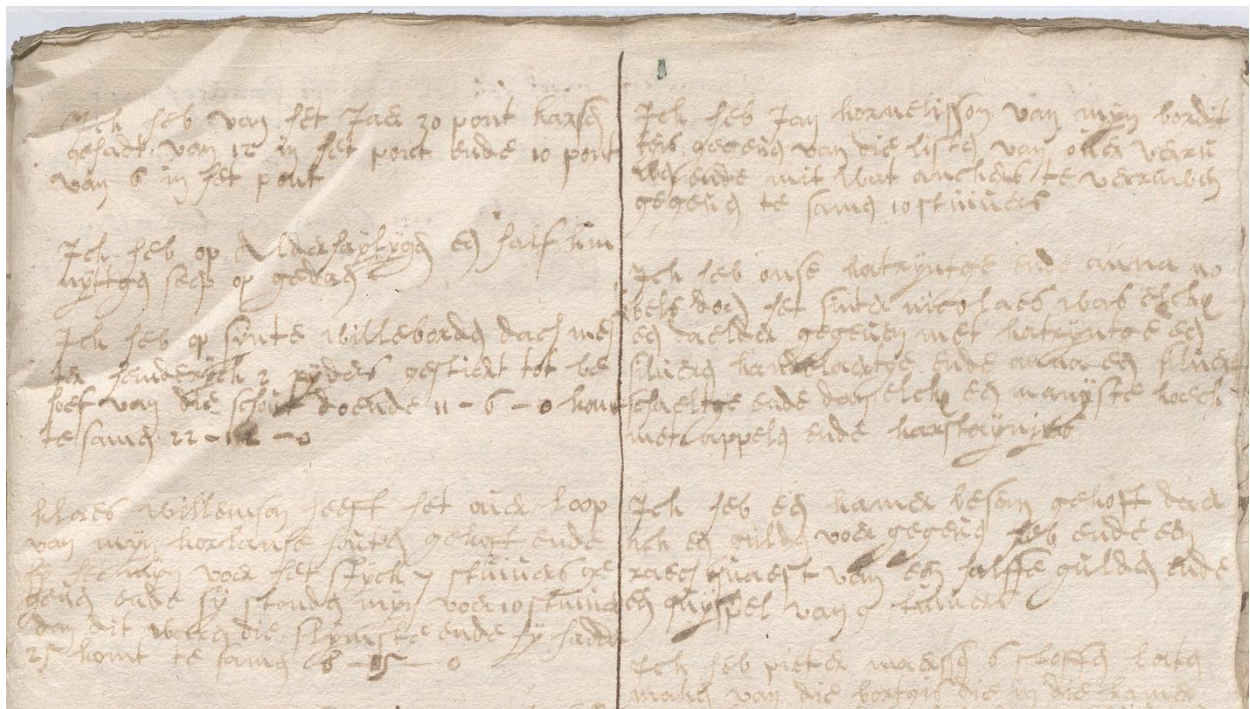 Ick heb van het Jaer 30 pont karsen
gehadt van 12 in het pont ende 10 pont
van 6 in het pont
Ick heb op Alderhaylygen en half kin
nyttgen seep op gedaen
Ick heb op synte willeborden dach mes
ter henderyck 2 ryders gestiert tot be
hoef van die schout doende 11 - 6 - 0 komt
te samen 22 - 12 - 0
klaes willemsen heeft het over loop
van myn horlanse houten gekoft ende
hy het myn voer het styck 7 stuivers ge
geven ende sy stonden myn voer 10 stuivers
dan dit waren die slymste ende hy hadder
25 komt te samen 8 - 15 - 0
Ick heb Jan kornelisson van myn bordit
tois gegeven van die listen van
ende mit wat anders te verwen
gegeven te samen 10 stuivers
Ick heb onse katryntge ende anna no
bels doen het sinter nicolaes was elck
een daelder gegeven met katryntge een
silveren ende anna een silveren
schaeltge ende doen elck een koeck
met appels ende karstaynges
Ick heb een kamer besem gekoft daer
ick en gulden voer gegeven heb ende een
raech quaest van een halffe gulden ende
en quyspel van 9 stuivers
Ick heb pieter maersen 6 sloffen laten
maken van die bortgis die in die kamer